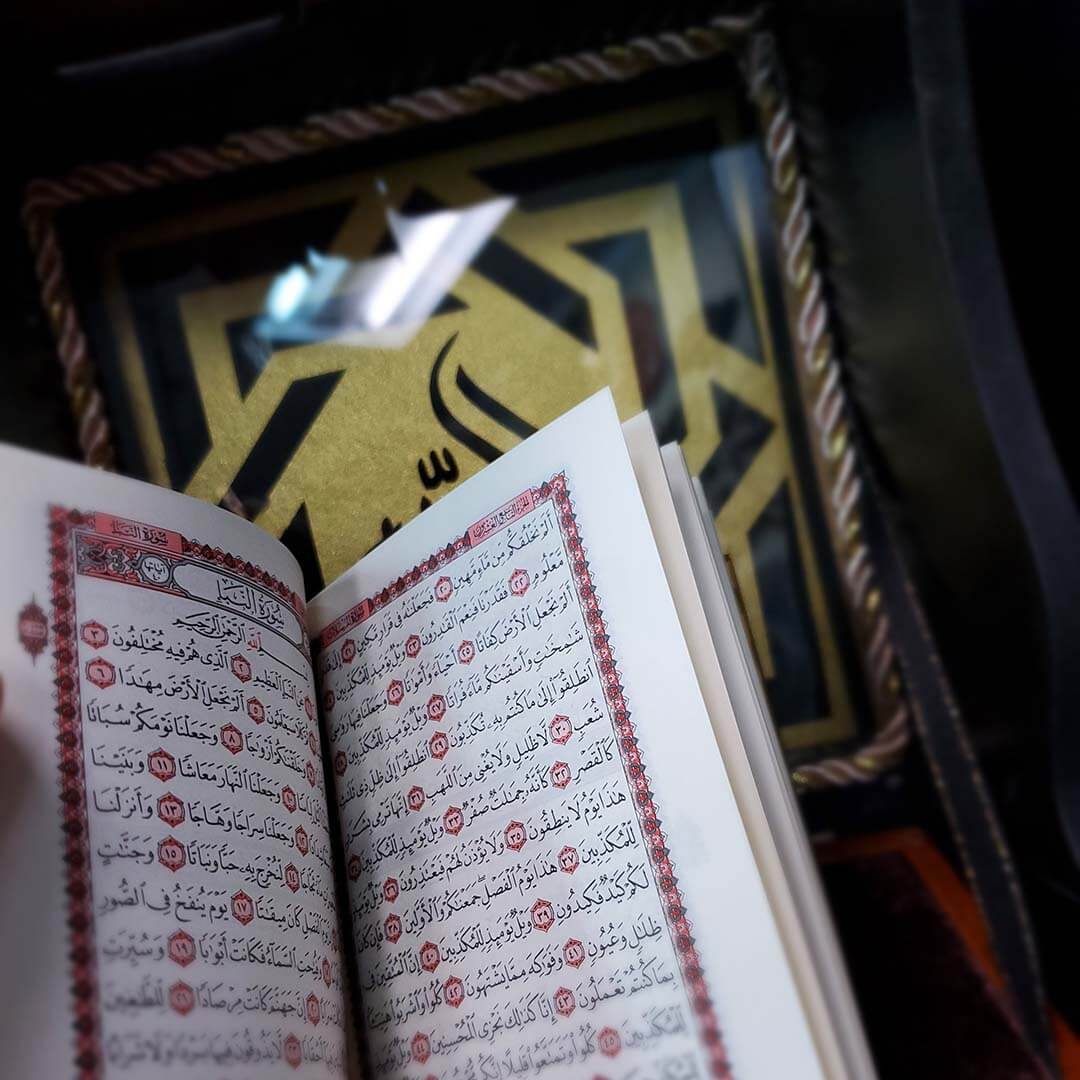 الجزء التاسع والعشرون
سورة المرسلات
أَلَمْ نَخْلُقكُّم مِّن مَّآءٍ مَّهِينٍ ٢٠ فَجَعَلْنَٰهُ فِى قَرَارٍ مَّكِينٍ ٢١ إِلَىٰ قَدَرٍ
مَّعْلُومٍ ٢٢ فَقَدَرْنَا فَنِعْمَ ٱلْقَٰدِرُونَ ٢٣ وَيْلٌ يَوْمَئِذٍ لِّلْمُكَذِّبِينَ ٢٤
أَلَمْ نَجْعَلِ ٱلْأَرْضَ كِفَاتًا ٢٥ أَحْيَآءً وَأَمْوَٰتًا ٢٦ وَجَعَلْنَا فِيهَا رَوَٰسِىَ
شَٰمِخَٰتٍ وَأَسْقَيْنَٰكُم مَّآءً فُرَاتًا ٢٧ وَيْلٌ يَوْمَئِذٍ لِّلْمُكَذِّبِينَ ٢٨
ٱنطَلِقُوٓا۟ إِلَىٰ مَا كُنتُم بِهِۦ تُكَذِّبُونَ ٢٩ ٱنطَلِقُوٓا۟ إِلَىٰ ظِلٍّ ذِى ثَلَٰثِ
شُعَبٍ ٣٠ لَّا ظَلِيلٍ وَلَا يُغْنِى مِنَ ٱللَّهَبِ ٣١ إِنَّهَا تَرْمِى بِشَرَرٍ
كَٱلْقَصْرِ ٣٢ كَأَنَّهُۥ جِمَٰلَتٌ صُفْرٌ ٣٣ وَيْلٌ يَوْمَئِذٍ لِّلْمُكَذِّبِينَ ٣٤
هَٰذَا يَوْمُ لَا يَنطِقُونَ ٣٥ وَلَا يُؤْذَنُ لَهُمْ فَيَعْتَذِرُونَ ٣٦ وَيْلٌ يَوْمَئِذٍ
لِّلْمُكَذِّبِينَ ٣٧ هَٰذَا يَوْمُ ٱلْفَصْلِ جَمَعْنَٰكُمْ وَٱلْأَوَّلِينَ ٣٨ فَإِن كَانَ
لَكُمْ كَيْدٌ فَكِيدُونِ ٣٩ وَيْلٌ يَوْمَئِذٍ لِّلْمُكَذِّبِينَ ٤٠ إِنَّ ٱلْمُتَّقِينَ فِى
ظِلَٰلٍ وَعُيُونٍ ٤١ وَفَوَٰكِهَ مِمَّا يَشْتَهُونَ ٤٢ كُلُوا۟ وَٱشْرَبُوا۟ هَنِيٓـًٔۢا
بِمَا كُنتُمْ تَعْمَلُونَ ٤٣ إِنَّا كَذَٰلِكَ نَجْزِى ٱلْمُحْسِنِينَ ٤٤ وَيْلٌ
لِّلْمُكَذِّبِينَ ٤٥ كُلُوا۟ وَتَمَتَّعُوا۟ قَلِيلًا إِنَّكُم
سورة النبإ
سُورَةُ ٱلنَّبَإِ
بِسْمِ ٱللَّهِ ٱلرَّحْمَٰنِ ٱلرَّحِيمِ
عَنِ ٱلنَّبَإِ ٱلْعَظِيمِ ٢ ٱلَّذِى هُمْ فِيهِ مُخْتَلِفُونَ ٣
كَلَّا سَيَعْلَمُونَ ٥ أَلَمْ نَجْعَلِ ٱلْأَرْضَ مِهَٰدًا ٦
وَخَلَقْنَٰكُمْ أَزْوَٰجًا ٨ وَجَعَلْنَا نَوْمَكُمْ سُبَاتًا
لِبَاسًا ١٠ وَجَعَلْنَا ٱلنَّهَارَ مَعَاشًا ١١ وَبَنَيْنَا
١٢ وَجَعَلْنَا سِرَاجًا وَهَّاجًا ١٣ وَأَنزَلْنَا
ثَجَّاجًا ١٤ لِّنُخْرِجَ بِهِۦ حَبًّا وَنَبَاتًا ١٥ وَجَنَّٰتٍ
ٱلْفَصْلِ كَانَ مِيقَٰتًا ١٧ يَوْمَ يُنفَخُ فِى ٱلصُّورِ
وَفُتِحَتِ ٱلسَّمَآءُ فَكَانَتْ أَبْوَٰبًا ١٩ وَسُيِّرَتِ
إِنَّ جَهَنَّمَ كَانَتْ مِرْصَادًا ٢١ لِّلطَّٰغِينَ
لَّا يَذُوقُونَ فِيهَا بَرْدًا وَلَا شَرَابًا